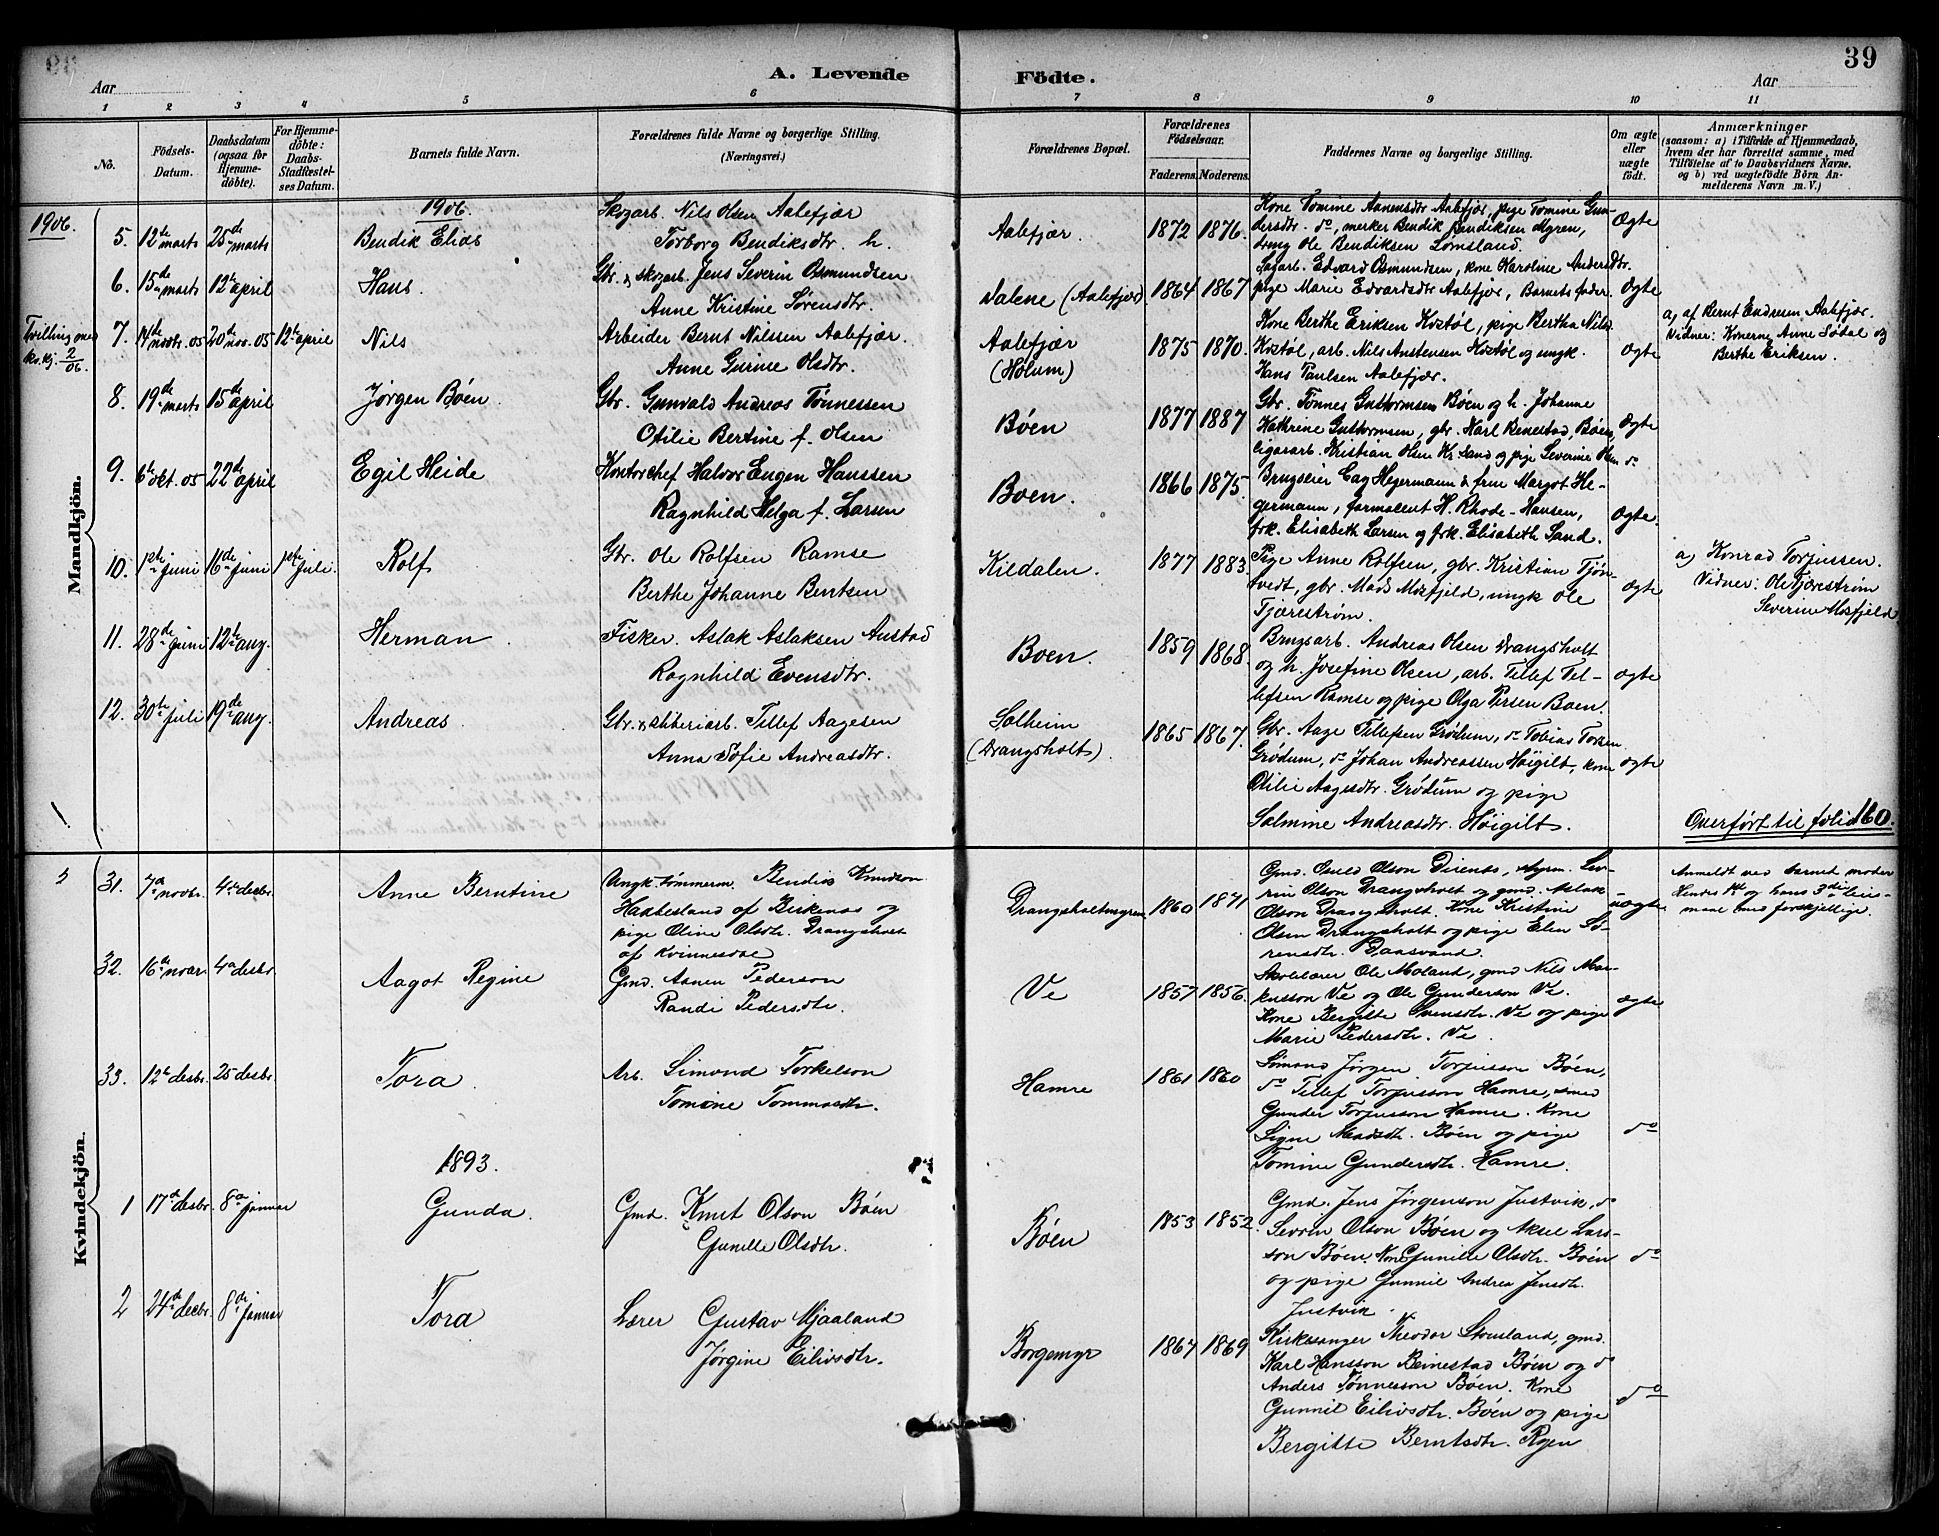 39
A. Levende Födte.
Aar
Aar
1 2 3 4 5 6 7 8 9 10 11
No.
Födsels-Datum.
Daabsdatum (ogsaa for Hjemmedöbte).
For Hjemmedöbte: Daabs-Stadfæstelses Datum.
Barnets fulde Navn.
Forældrenes fulde Navne og borgerlige Stilling. (Næringsvei.)
Forældrenes Bopæl.
Forældrenes Födselsaar.
Faderens. Moderens.
Faddernes Navne og borgerlige Stilling.
Om ægte eller uægte födt.
Anmærkninger
(saasom: a) i Tilfælde af Hjemmedaab,
hvem der har forrettet samme, med
Tilföielse af to Daabsvidners Navne,
og b) ved uægtefödte Börn An-
melderens Navn m. V.)
Mandkjön.
1906.
1906.
5. 12te marts 25de marts
Bendik Elias
Skogarb. Nils Olsen Aalefjær
Torborg Bendiksdtr. h.
Aalefjær.
1872 1876.
Kone Tomine Aanensdtr Aalefjær, pige Tomine Gun-
dersdtr. do, merker Bendik Bendiksen Myren,
dreng Ole Bendiksen Lømsland.
Ægte
6. 15de marts 12te april
Hans.
Gbr. & skogarb. Jens Severin Osmundsen
Anne Kristine Sørensdtr.
Dalene (Aalefjær)
1864 1867
Sagarb. Edvard Osmundsen, kone Karoline Andersdtr.
pige Marie Edvardsdtr Aalefjær, Barnets fader.
Ægte
Tvilling med
kv.kj. 2/06.
7. 14de novbr. 05 20de nov. 05 12te april
Nils
Arbeider Bernt Nilssen Aalefjær.
Anne Gurine Olsdtr.
Aalefjær
(Holum)
1875 1870.
Kone Berthe Eriksen Kostøl, pige Bertha Nils.
Kostøl, arb. Nils Anstensen Kostøl og ungk.
Hans Paulsen Aalefjær.
Ægte
a) af Bernt Endresen Aalefjær.
Vidner: Konerne Anne Sødal og
Berthe Eriksen.
8. 19de marts 15de april
Jørgen Bóen.
Gbr. Gunvald Andreas Tønnessen
Otilie Bertine f. Olsen
Bóen
1877 1887
Gbr. Tønnes Guttormsen Bóen og h. Johanne
Kathrine Guttormsen, gbr. Karl Benestad, Bóen,
ligasarb. Kristian Olsen Kr.sand og pige Severine Olsen do
Ægte
9. 6te okt. 05 22de april
Egil Heide
Kontorchef Halvor Eugen Hanssen
Ragnhild Helga f. Larsen
Boen.
1866 1875.
Brugseier Cay Hegermann & frue Margot He-
germann, formalent H. Rhode-Hansen,
frk. Elisabeth Larsen og frk. Elisabeth Sand.
Ægte.
10. 1ste juni 16de juni 1ste juli.
Rolf
Gbr. Ole Rolfsen Ramse
Berthe Johanne Bentsen
Kildalen.
1877 1883.
Pige Anne Rolfsen, gbr. Kristian Tjøn-
tvedt, gbr. Mads Mosfjeld, ungk Ole
Tjærestrøm.
ægte
a) Konrad Torjussen.
Vidner: Ole Tjærestrøm
Severine Mosfjeld
11. 28de juni 12te aug.
Herman
Fisker. Aslak Aslaksen Austad
Ragnhild Evensdtr.
Boen.
1859 1868.
Brugsarb. Andreas Olsen Drangsholt
og h. Josefine Olsen, arb. Tellef Tel-
lefsen Ramse og pige Olga Persen Boen.
ægte
12. 30te juli 19de aug.
Andreas
Gbr. & sliberiarb. Tellef Aagesen
Anna Sofie Andreasdtr.
Solheim
(Drangsholt)
1865 1867.
Gbr. Aage Tellefsen Grødum, do Tobias Torsen
Grødum, do Johan Andreassen Høigilt, kone
Otilie Aagesdtr. Grødum og pige
Salmine Andreasdtr. Høigilt.
ægte
Overført til folio 160.
Kvindekjön.
31. 7de novbr. 4de desbr.
Anne Berntine
Ungk. tømmerm. Bendix Knudson
Haabesland af Birkenes og
pige Oline Olsdtr. Drangsholt
af Kvinnesdal
Drangsholtmyren
1860 1871
Olson Drangsholt. Kone Kristine
Olsen Drangsholt og pige Elen Sø-
rensdtr. Daasvand.
uægte
Anmeldt ved barnet moder
Hendes 1ste og hans 3die leier-
maal med forskjellige.
32. 16de novbr. 4de desbr.
Aagot Regine
Gmd. Aanen Pederson
Randi Pedersdtr.
Ve
1857 1856.
Skolelærer Ole Moland, gmd Nils Mar-
kusson Ve og Ole Gunderson Ve.
Kone Bergitte Svensdtr. Ve og pige
Marie Pedersdtr. Ve.
ægte
33. 12te desbr. 25 desbr.
Tora.
Arb. Simond Torkelson
Tomine Tommasdtr.
Hamre
1861 1860
Sømand Jørgen Torjusson Bóen,
do Tellef Torjusson Hamre, smed
Gunder Torjusson Hamre. Kone
Signe Madsdtr. Bóen og pige
Tomine Gundersdtr. Hamre.
do
1893.
1 17de desbr. 8de januar
Gunda.
Gmd. Knut Olson Bóen
Gunille Olsdtr.
Bóen
1853 1852
Gmd. Jens Jørgenson Justvik, do
Severin Olson Bóen og Aksel Lars-
son Bóen. Kone Gunille Olsdtr. Bóen
og pige Gunnil Andrea Jensdtr.
Justvik.
do
2 24de desbr. 8de januar
Tora
Lærer Gustav Mjaaland
Jørgine Eilivsdtr.
Borgemyr
1867 1869
Kirkesanger Theodor Stensland, gmd.
Karl Hansson Beinestad Bóen og do
Anders Tønnesson Bóen. Kone
Gunnil Eilivsdtr. Bóen og pige
Bergitte Berntsdtr. Ryen
do